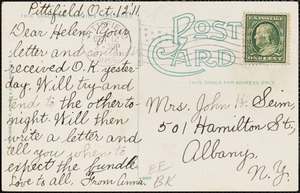 Pittsfield, Oct. 12, 11.
Dear Helen, Your
letter and
received O.K. yester-
day. Will try and
tend to the other to-
night. Will then
write a letter and
tell you when to
expect the bundle
Love to all. From Anna.
POST
CARD
THIS SPACE FOR ADDRESS
Mrs. John B. Seim,
501 Hamilton St.
Albany,
N.Y.
EE
BK